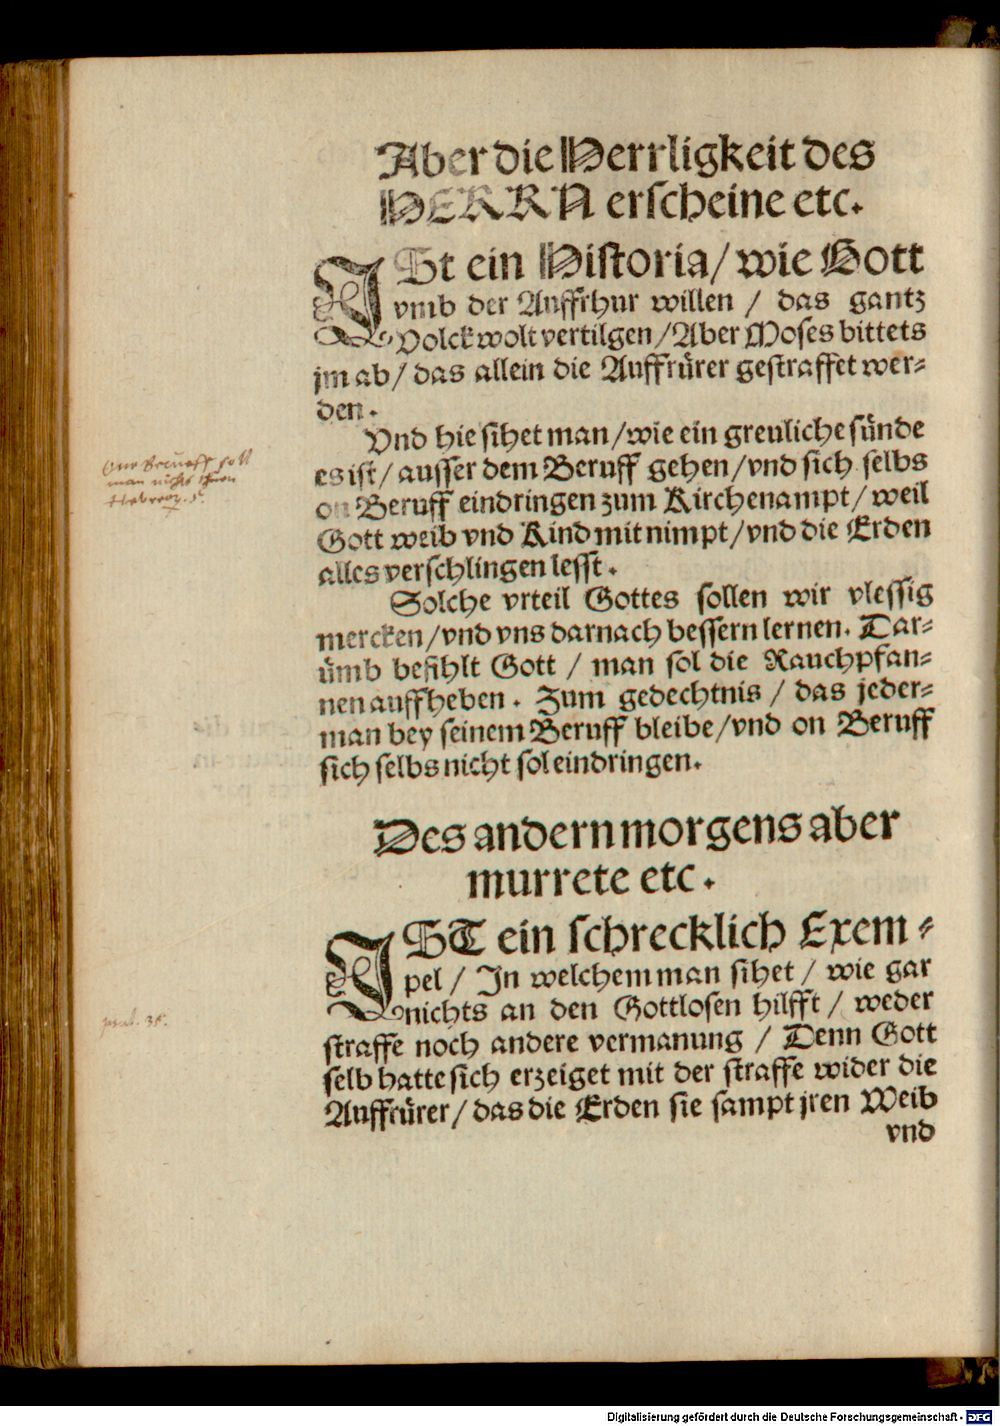 Aber die Herrligkeit des
HERRN erscheine etc.
ISt ein Historia/ wie Gott
vmb der Auffrhur willen / das gantz
Volck wolt vertilgen/Aber Moses bittets
jm ab/ das allein die Auffrürer gestraffet wer-
den.
Vnd hie sihet man/wie ein greuliche sünde
es ist/ ausser dem Beruff gehen/vnd sich selbs
on Beruff eindringen zum Kirchenampt/ weil
Gott weib vnd Kind mit nimpt/vnd die Erden
alles verschlingen lesst.
man nichts
Solche vrteil Gottes sollen wir vlessig
mercken/vnd vns darnach bessern lernen. Dar-
ümb befihlt Gott / man sol die Rauchpfan-
nen auffheben. Zum gedechtnis / das jeder-
man bey seinem Beruff bleibe/vnd on Beruff
sich selbs nicht sol eindringen.
Des andern morgens aber
murrete etc.
IST ein schrecklich Exem-
pel / In welchem man sihet / wie gar
nichts an den Gottlosen hilfft / weder
straffe noch andere vermanung / Denn Gott
selb hatte sich erzeiget mit der straffe wider die
Auffrürer/ das die Erden sie sampt jren Weib
vnd
Digitalisierung gefördert durch die Deutsche Forschungsgemeinschaft - DFG